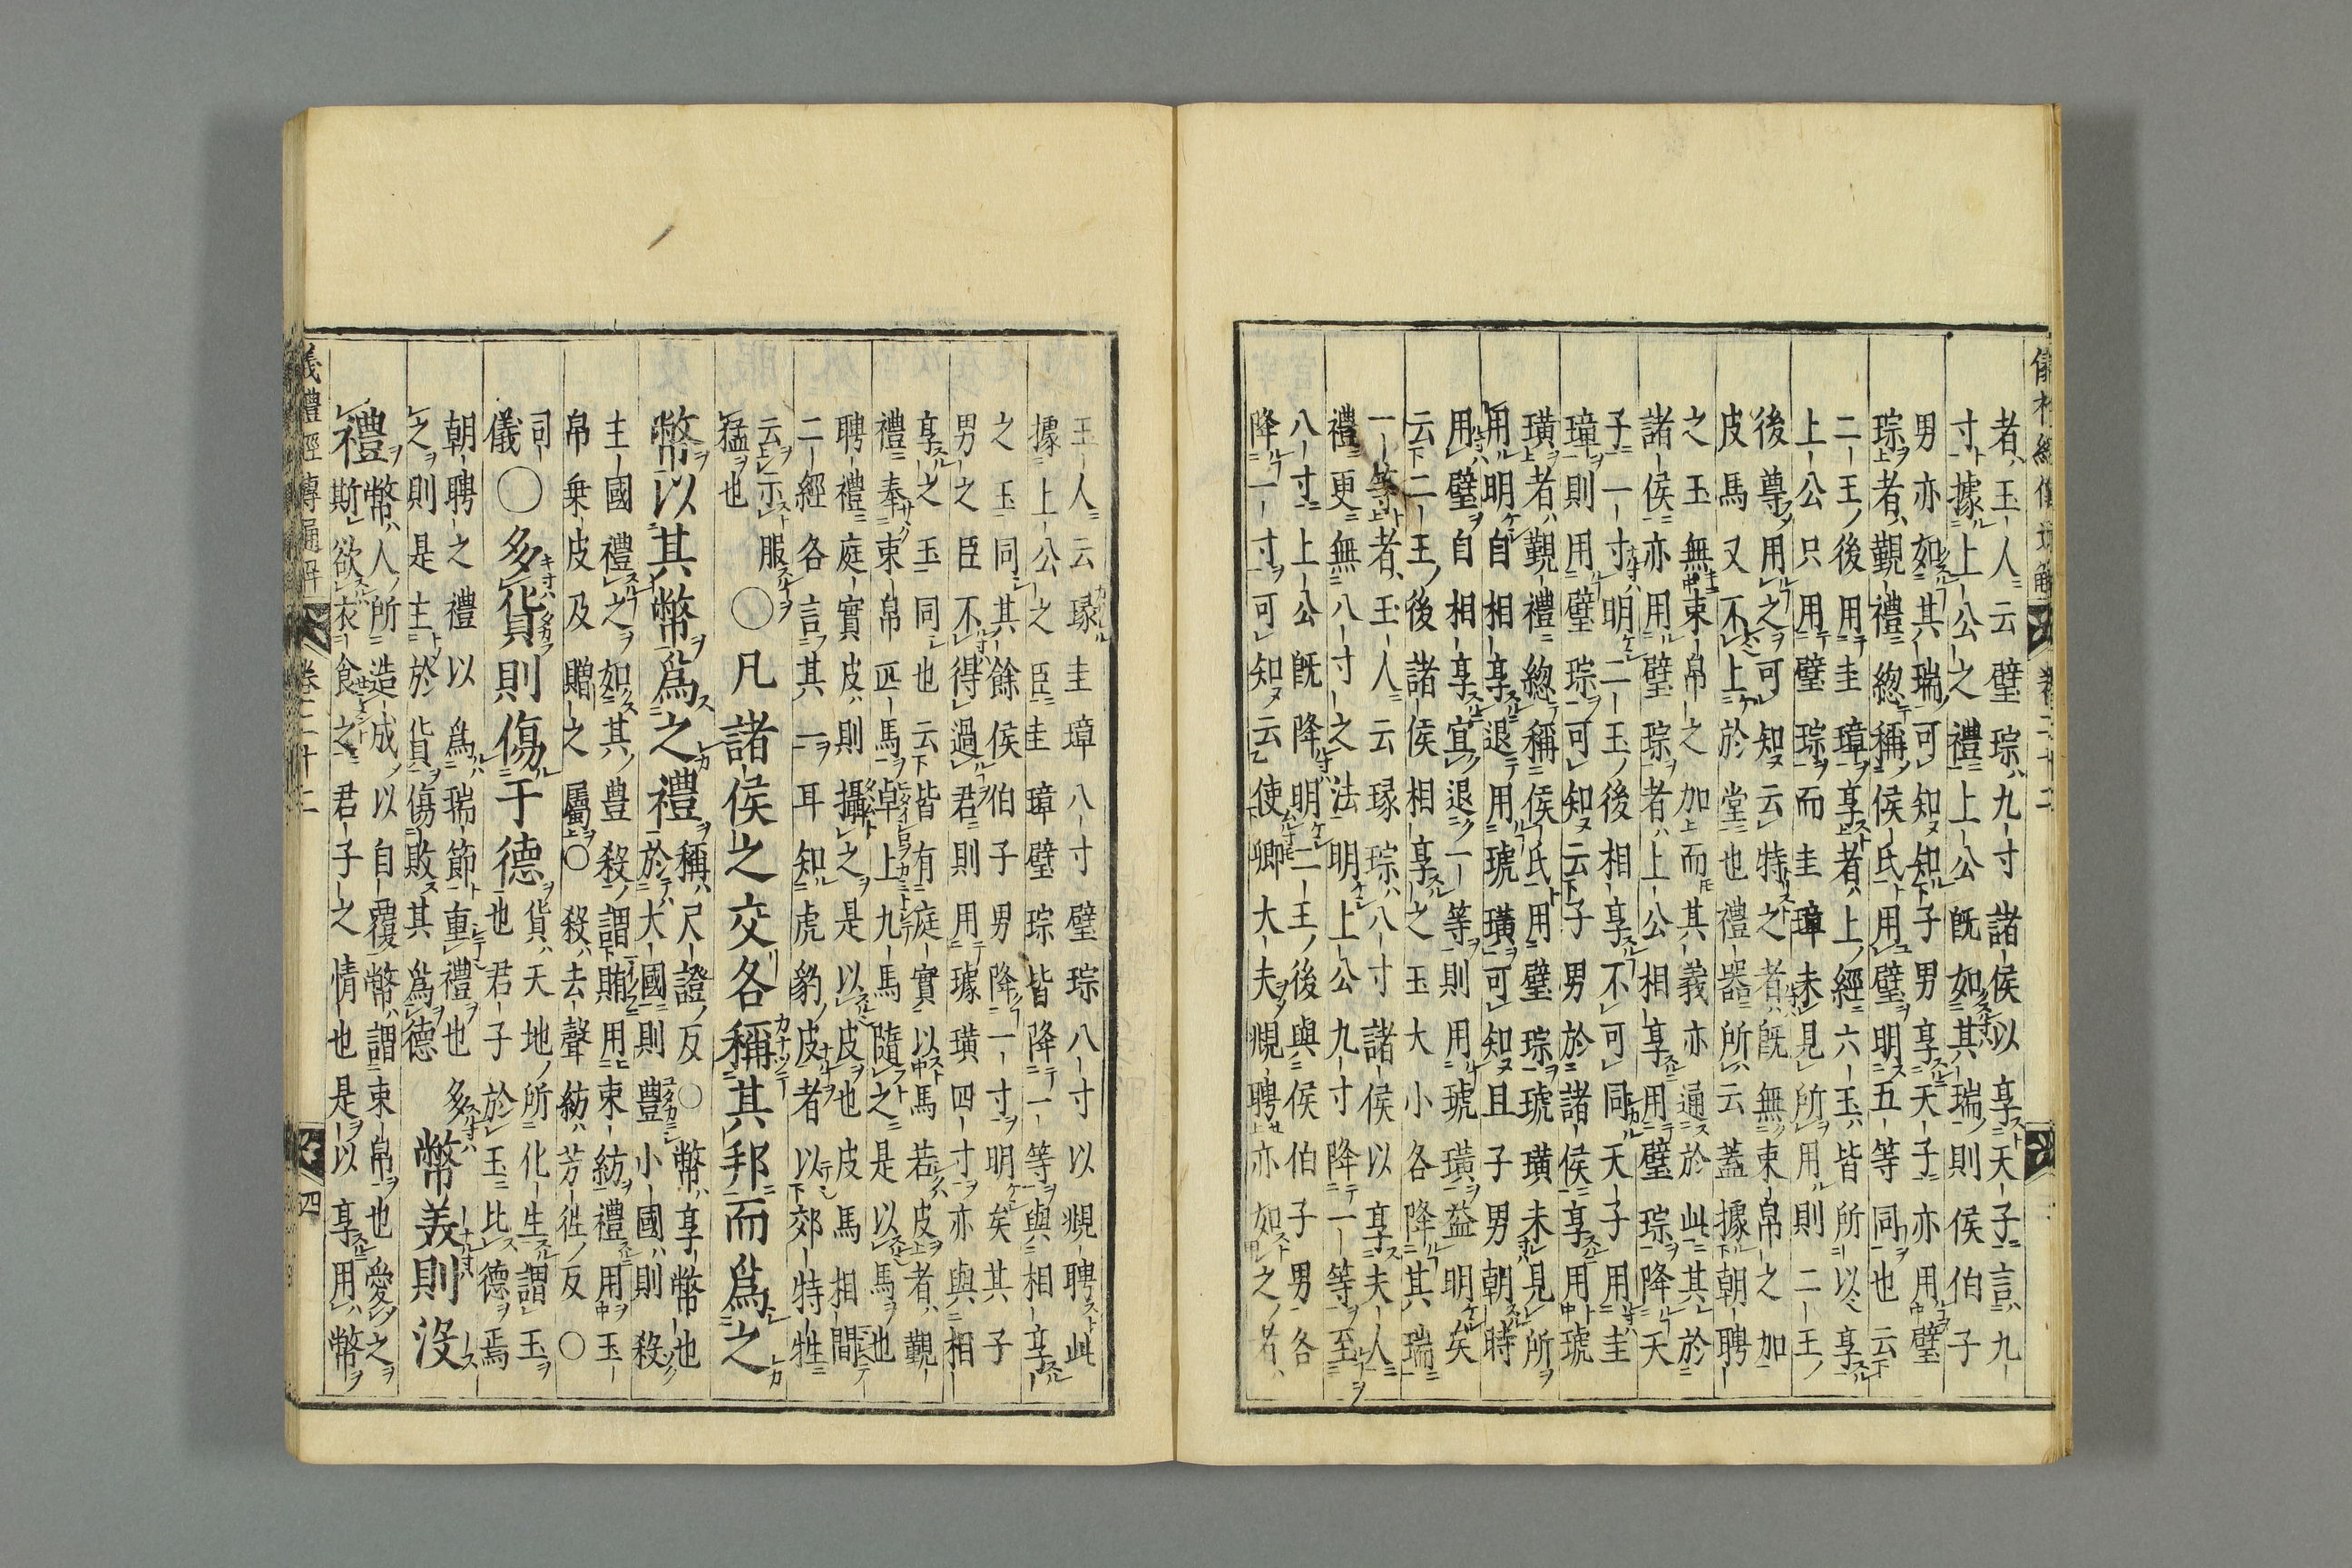 者玉人云璧琮九寸諸侯以享天子言九
寸據上公之禮上公既如其瑞則侯伯子
男亦如其瑞可知知子男享天子亦用璧
琮者覲禮總稱侯氏用璧明五等同也云
二王後用圭璋享者上經六玉皆所以享
上公只用璧琮而圭璋未見所用則二王
後尊用之可知云特之者既無束帛之加
皮馬又不上於堂也禮器所云蓋據朝聘
之玉無束帛之加而其義亦通於此其於
諸侯亦用璧琮者上公相享用璧琮降天
子一寸明二王後相享不可同天子用圭
璋則用璧琮可知云子男於諸侯享用琥
璜者覲禮總稱侯氏用璧琮琥璜未見所
用明自相享退用琥璜可知且子男朝時
用璧自相享宜退一等則用琥璜益明矣
云二王後諸侯相享之玉大小各降其瑞
一等者玉人云瑑琮八寸諸侯以享夫人
禮更無八寸之法明上公九寸降一等至
八寸上公既降明二王後與侯伯子男各
降一寸可知云使卿大夫覜聘亦如之者
玉人云瑑圭璋八寸璧琮八寸以覜聘此
據上公之臣圭璋璧琮皆降一等與相享
之玉同其餘侯伯子男降一寸明矣其子
男之臣不得過君則用璩璜四寸亦與相
享之玉同也云皆有庭實以馬若皮者覲
禮奉束帛匹馬卓上九馬隨之是以馬也
聘禮庭實皮則攝之是以皮也皮馬相間
二經各言其一耳知虎豹皮者以郊特牲
云示服
猛也
○凡諸侯之交各稱其邦而爲之
幣以其幣爲之禮
稱尺證反○幣享幣也
於大國則豐小國則殺
主國禮之如其豐殺謂賄用束紡禮用玉
帛乗皮及贈之屬○殺去聲紡芳徃反○
司
儀
○多貨則傷于德
貨天地所化生謂玉
也君子於玉比德焉
朝聘之禮以爲瑞節重禮也多
之則是主於貨傷敗其爲德
幣美則沒
禮
幣人所造成以自覆幣謂束帛也愛之
斯欲衣食之君子之情也是以享用幣
儀禮經傳通解 卷二十二 四